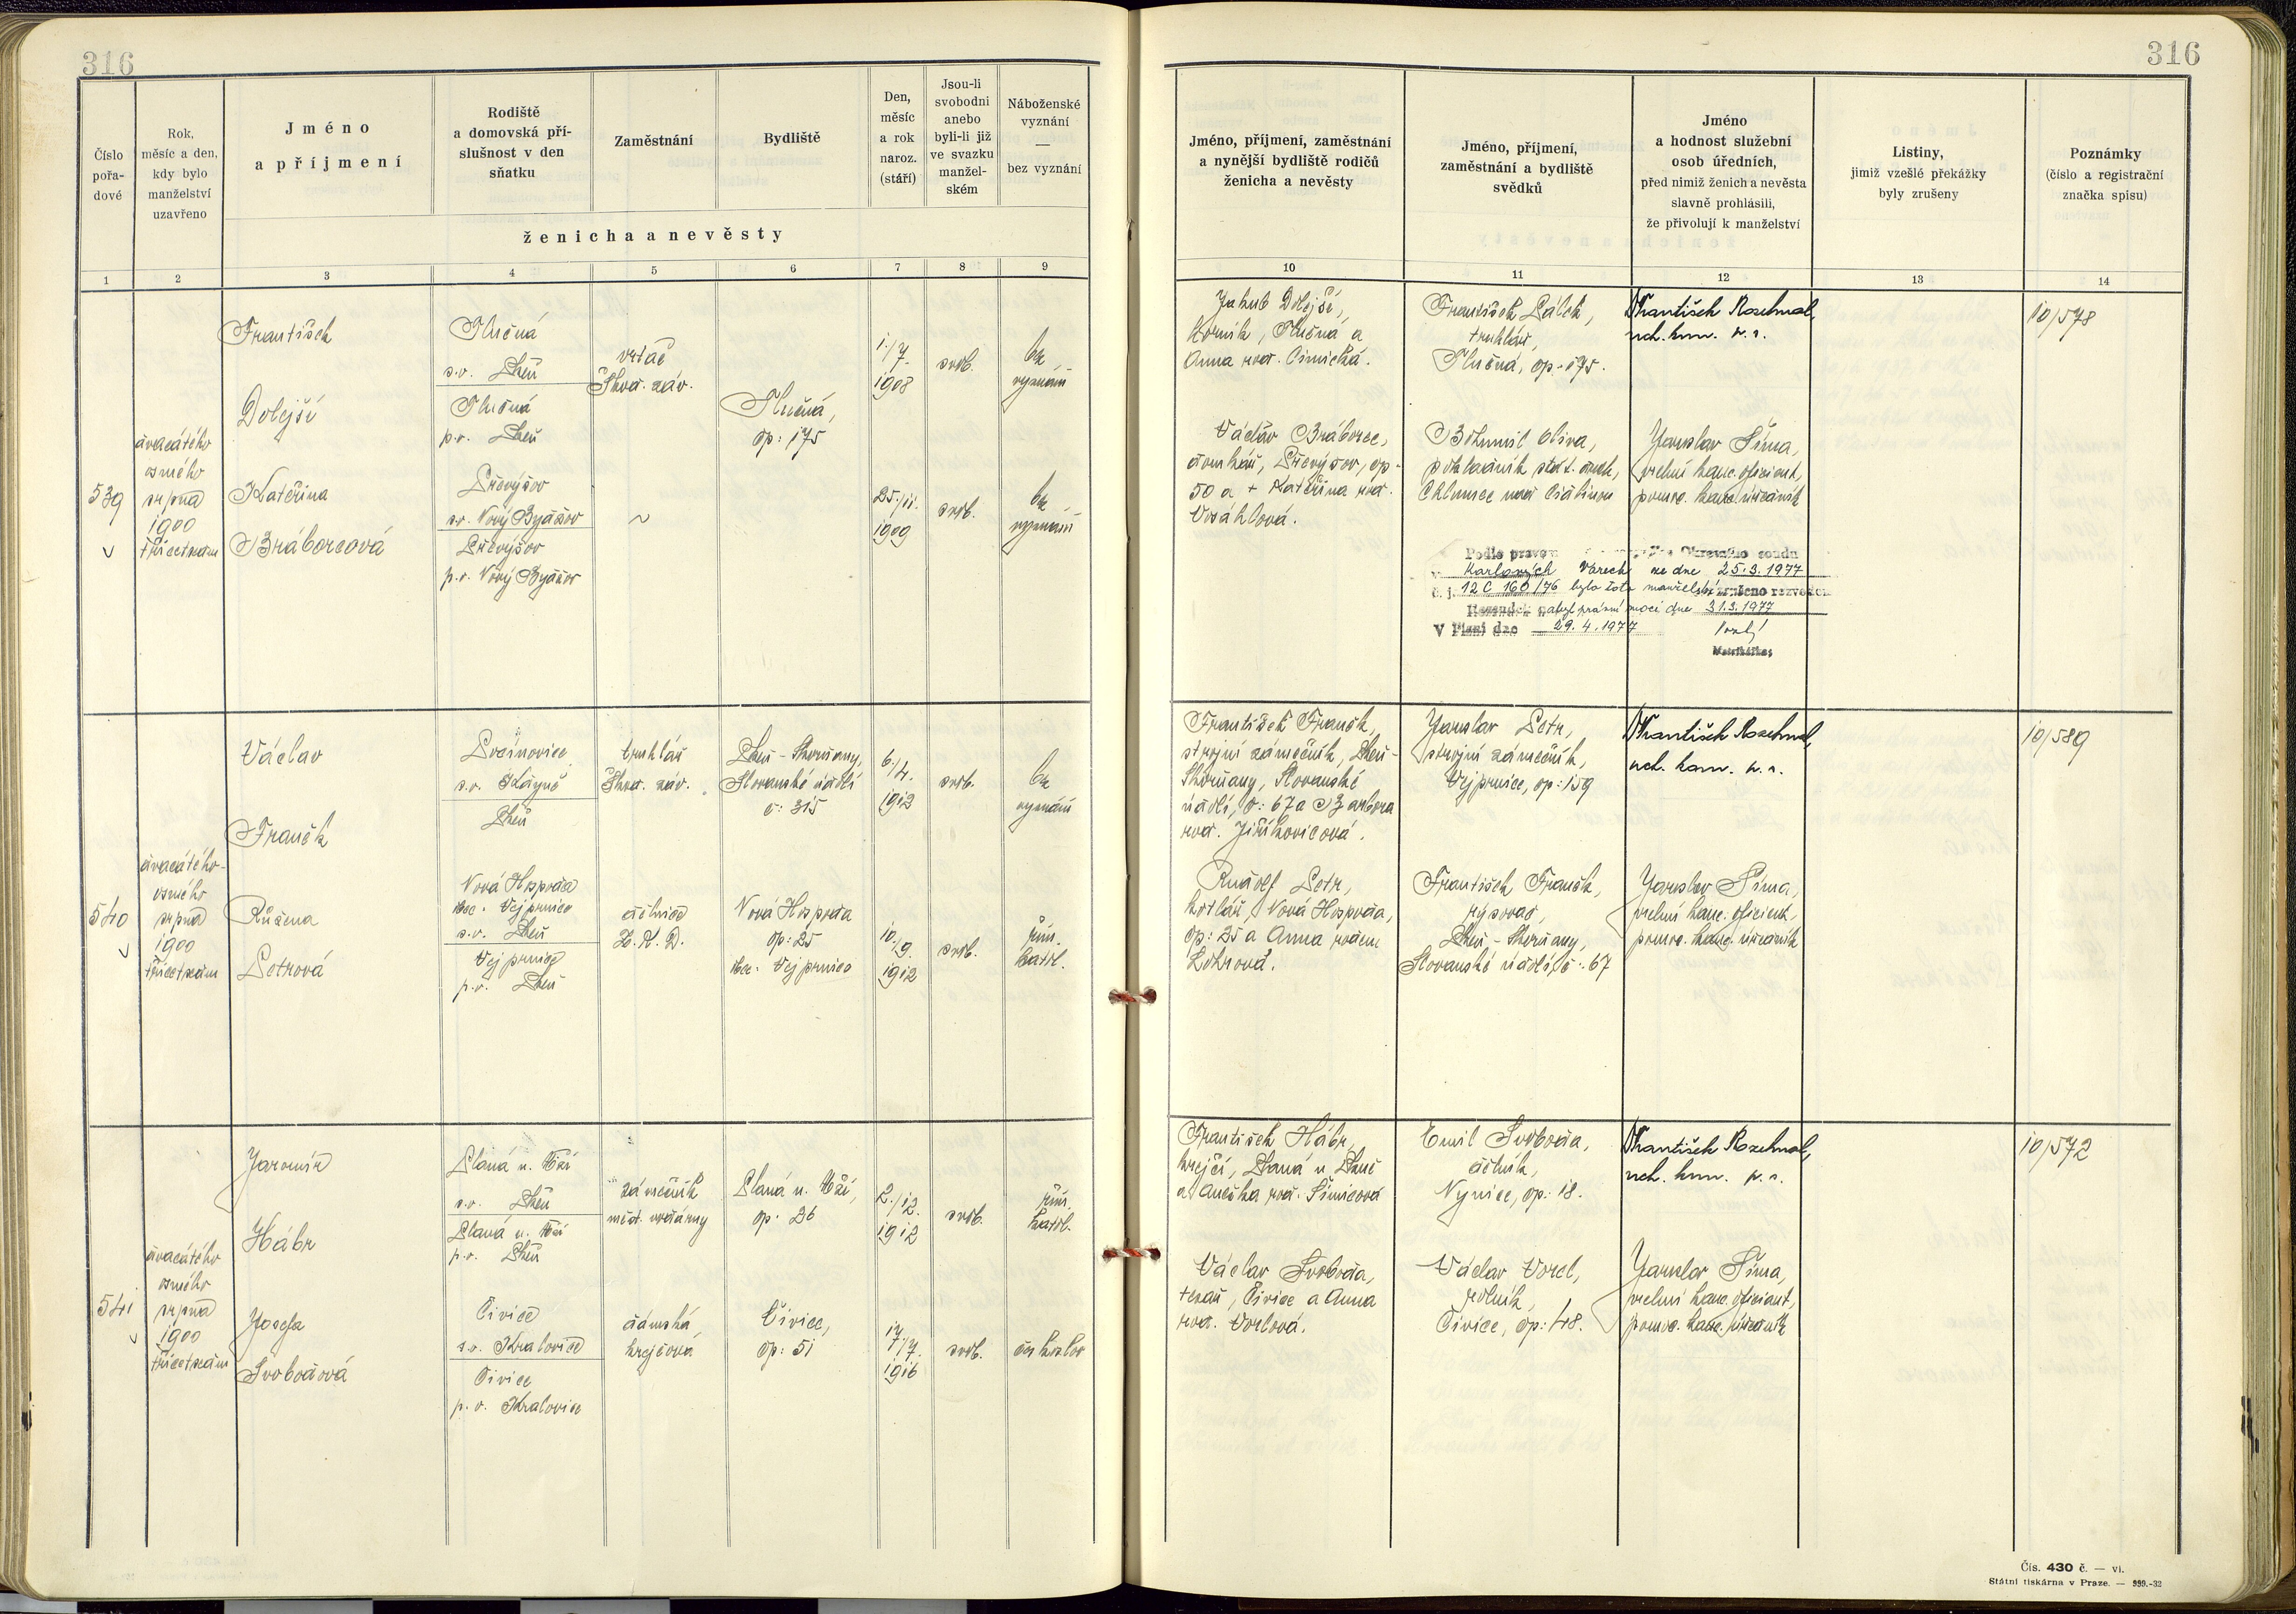 316
316
Číslo
pořa-
dové
Rok,
měsíc a den,
kdy bylo
manželství
uzavřeno
Jméno
a příjmení
Rodiště
a domovská pří-
slušnost v den
sňatku
Zaměstnání
Bydliště
Den,
měsíc
a rok
naroz.
(stáří)
Jsou-li
svobodni
anebo
byli-li již
ve svazku
manžel-
ském
Náboženské
vyznání
—
bez vyznání
ženicha a nevěsty
Jméno, příjmení, zaměstnání
a nynější bydliště rodičů
ženicha a nevěsty
Jméno, příjmení,
zaměstnání a bydliště
svědků
Jméno
a hodnost služební
osob úředních,
před nimiž ženich a nevěsta
slavně prohlásili,
že přivolují k manželství
Listiny,
jimiž vzešlé překážky
byly zrušeny
Poznámky
(číslo a registrační
značka spisu)
1 2 3 4 5 6 7 8 9 10 11 12 13 14
539
dvacátého
osmého
srpna
1900
třicet sedm
František
Dolejší
Kateřina
Bráborcová
Tlučná
s.o. Plzeň
Tlučná
p.o. Plzeň
Převýšov
s.o. Nový Bydžov
Převýšov
p.o. Nový Bydžov
vrtač
Škod. záv.
~
Tlučná,
čp: 175
1./7.
1908
25./11.
1909
svob.
svob.
bez
vyznání
bez
vyznání
Jakub Dolejší,
horník, Tlučná a
Anna roz. Cimická.
Václav Bráborec,
domkář, Převýšov, čp.
50 a + Kateřina roz.
Vosáhlová.
František Pálek,
truhlář,
Tlučná, čp. 175.
Bohumil Oliva,
pokladník stát. drah,
Chlumec nad Cidlinou
František Rozhmal,
uch. kom. v. r.
Jaroslav Šíma,
vrchní kanc. oficiant,
pomoc. kanc. úředník
10/578
Karlových Varech ze dne 25.3.1977
č. j. 12 C 160/76 bylo toto manželství zrušeno rozvodem
Rozsudek nabyl právní moci dne 31.3.1977
V Plzni dne 29.4.1977
Matrikářka:
540
dvacátého
osmého
srpna
1900
třicet sedm
Václav
Franěk
Růžena
Petrová
s.o.
Plzeň
Nová Hospoda
obec. Vejprnice
s.o. Plzeň
Vejprnice
p.o. Plzeň
truhlář
Škod. záv.
dělnice
Plzeň - Skvrňany,
Slovanské údolí
č: 315
Nová Hospoda
čp: 25
obec: Vejprnice
6./4.
1912
10./9.
1912
svob.
svob.
bez
vyznání
řím.
katol.
František Franěk,
strojní zámečník, Plzeň -
Skvrňany, Slovanské
údolí, č: 67 a Barbora
roz. Jiříkovicová.
Rudolf Petr,
kotlář, Nová Hospoda,
čp: 25 a Anna rozen.
Jaroslav Petr,
strojní zámečník,
Vejprnice, čp: 159
František Franěk,
rýsovač,
Plzeň - Skvrňany,
Slovanské údolí, č: 67
František Rozhmal,
uch. kom. v. r.
Jaroslav Šíma,
vrchní kanc. oficiant,
pomoc. kanc. úředník
10/589
541
dvacátého
osmého
srpna
1900
třicet sedm
Jaromír
Hábr
Josefa
Svobodová
Planá u. Mží
s.o. Plzeň
Planá u. Mží
p.o. Plzeň
Čivice
s.o. Kralovice
Čivice
p.o. Kralovice
zámečník
měst. vodárny
dámská
krejčová
Planá u. Mží,
čp. 26
Čivice,
čp: 51
2./12.
1912
17./7.
1916
svob.
svob.
řím.
katol.
František Hábr,
krejčí, Planá u Plzně
a Anežka roz. Šimicová
Václav Svoboda,
tesař, Čivice a Anna
roz. Vorlová.
Emil Svoboda,
dělník,
čp: 18.
Václav Vorel,
rolník,
Čivice, čp: 48.
František Rozhmal,
uch. kom. v. r.
Jaroslav Šíma,
vrchní kanc. oficiant,
pomoc. kanc. úředník
10/572
Čís. 430 č. — vi.
Státní tiskárna v Praze. — 999.-32